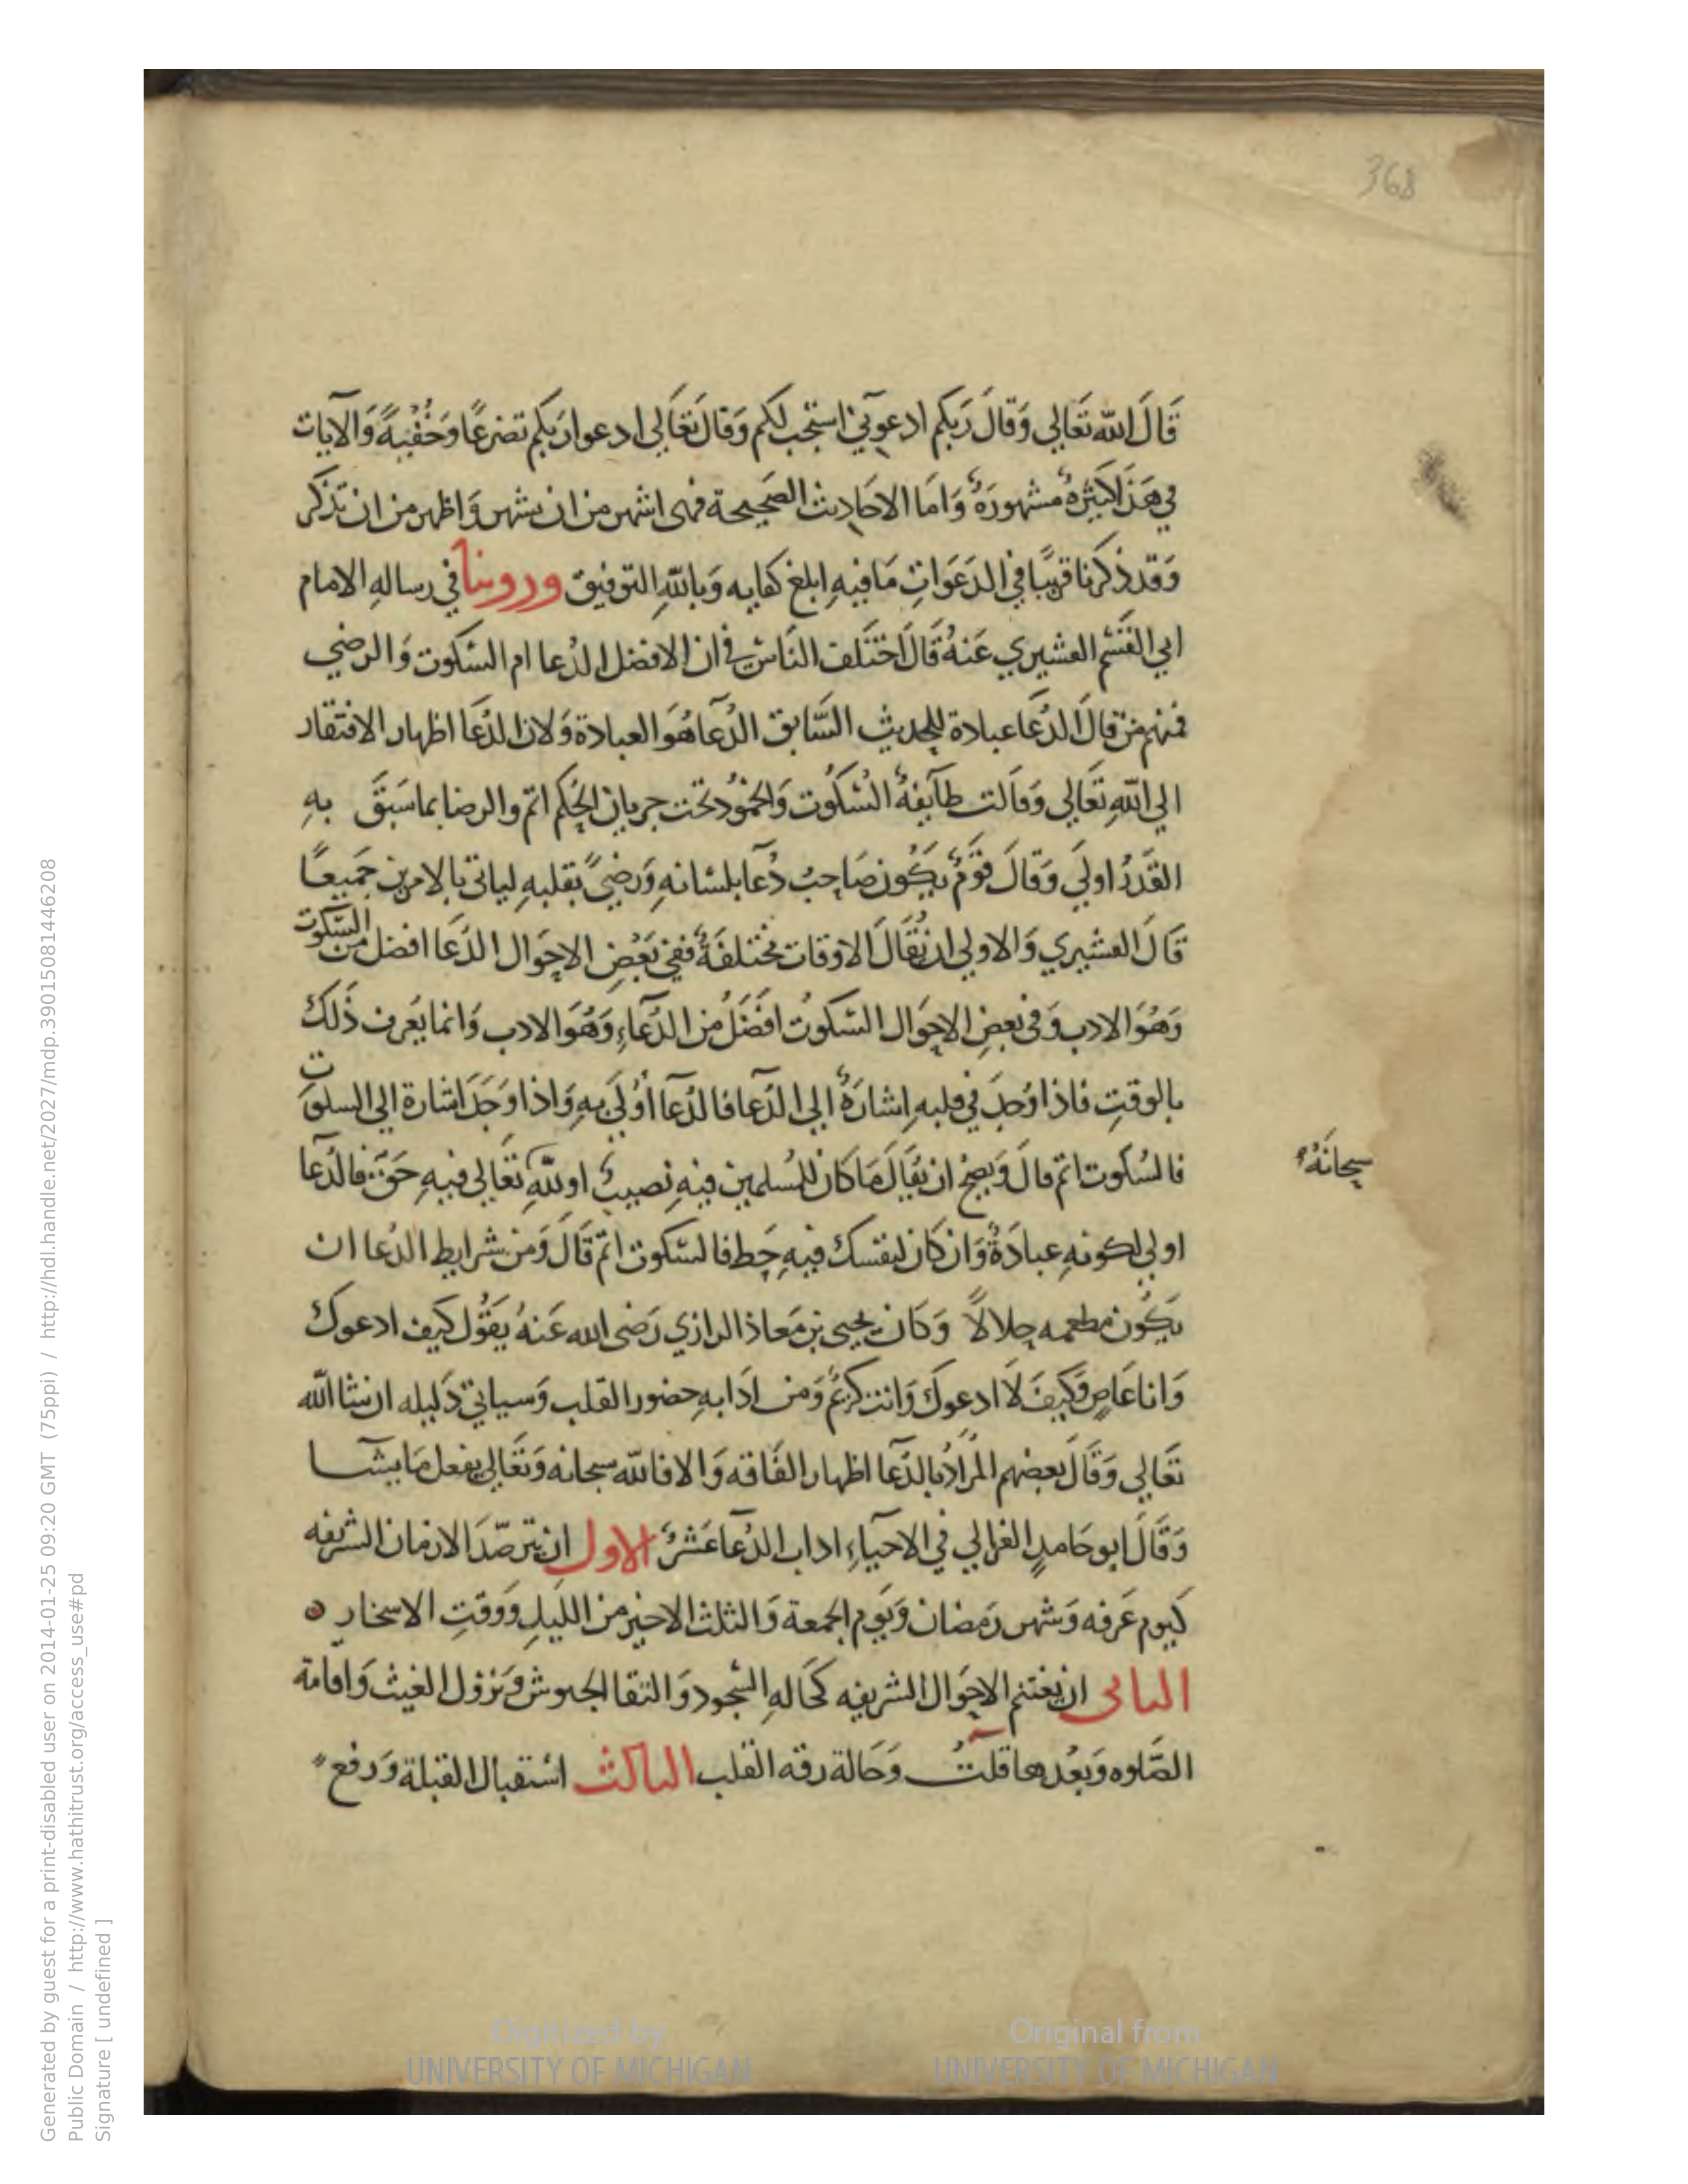 368
قَالَ الله تَعَالي وَقَالَ رَبكم ادعوني استجب لكم وَقالَ تَعَالي ادعوا ربكم تضرعًا وَخُفْيَةً وَالآيات
في هَذا كثيرةٌ مشهورَةٌ وَامَا الاحَاديث الصَحيحة فهي اشهر من ان تشهر وَاظهر من ان تذكر
وَقد ذكرنا قريبًا في الدَعَوَاتِ مَا فيهِ ابلغ كفايه وَباللهِ التوفيق وروينا في رسالهِ الامام
ابي القسم القشيري عَنهُ قَالَ اختَلف النَاسُ في ان الافضل الدُعا ام السّكوت وَالرضي
فمنهم من قالَ الدُعَا عبادة للحديث السَّابق الدُعَا هُوَ العبادة وَلان الدُعَا اظهار الافتقار
الي اللهِ تَعَالي وَقالت طآيفةٌ السُكُوت وَالخمودُ تحت جريان الحُكم اتم والرضا بما سَبَقَ بهِ
القَدَرُ اولَي وَقَالَ قَومٌ يَكُون صَاحِبُ دُعَا بلسَانهِ وَرِضيً بقلبهِ لياتي بالامرين جَميعًا
قَالَ القشيري وَالاولي ان يُقَالَ الاوقات مختلفَةٌ ففي بَعْضِ الاحوَال الدُعَا افضل من السّكوت
وَهُوَ الادب وَفي بعضِ الاحوَال السّكوتُ افضَلُ من الدُعَآءِ وَهُوَ الادب وَانما يَعرف ذَلكَ
بالوقتِ فاذا وُجدَ في قلبهِ إشارَةٌ الي الدُعَا فالدُعَآ أوْلَي بهِ وَاذا وَجَدَ اشارة الي السلوَت
فالسُكوت اتم قالَ وَيَصحُ ان يُقالَ مَا كان للمُسلمين فيهِ نصيبٌ او للّهِ تَعَالي فيهِ حَقٌ فالدُعَا
سبحانَهُ
اولي لكونهِ عبادَةً وَان كَان لنفسك فيهِ حَظ فالسّكوت اتم قَالَ وَمن شرايط الدُعا ان
يَكُون مطعمه حلالاً وَكَان يحيي بن مَعَاذ الرازي رَضي الله عَنهُ يَقُول كيفَ ادعوكَ
وَانا عَاصٍ وَكيفَ لَا ادعوكَ وَانت كريمٌ وَمن ادَابهِ حضور القلب وَسياتي دَليله ان شا الله
تَعَالي وَقَالَ بعضهم المرَادُ بالدُعَآ اظهار الفَاقه وَالا فالله سبحانه وَتَعَالي يفعل مَا يشَا
وَقَالَ ابو حَامدٍ الغزالي في الاحيآءِ اداب الدُعَا عَشرٌ الاول ان يترصّدَ الازمان الشريفه
كيوم عَرفه وَشهر رَمضان وَيوم الجمعة وَالثلث الاخير من الليلِ وَوقتِ الاسحَارِ ۞
الثاني ان يغتنم الاحوَال الشريفه كحَالهِ السُّجود وَالتقا الجيوش وَنزول الغيث وَاقامة
الصَّلوه وَبَعْدها قلتُ وَحَالة رقه القلب الثالث اسْتقبال القبلة وَرفع